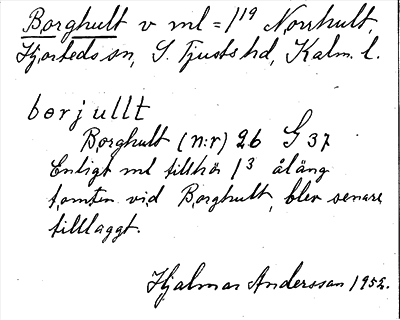 Borghult v ml = /19 Norrhult,
Hjorteds sn, S. Tjusts hd, Kalm. l.
borjullt
Borghult (n:r) 26 G 37
Enligt ml tillhör /3 åläng
tomten vid Borghult, blev senare
tilllaggt.
Hjalmar Andersson 1952.